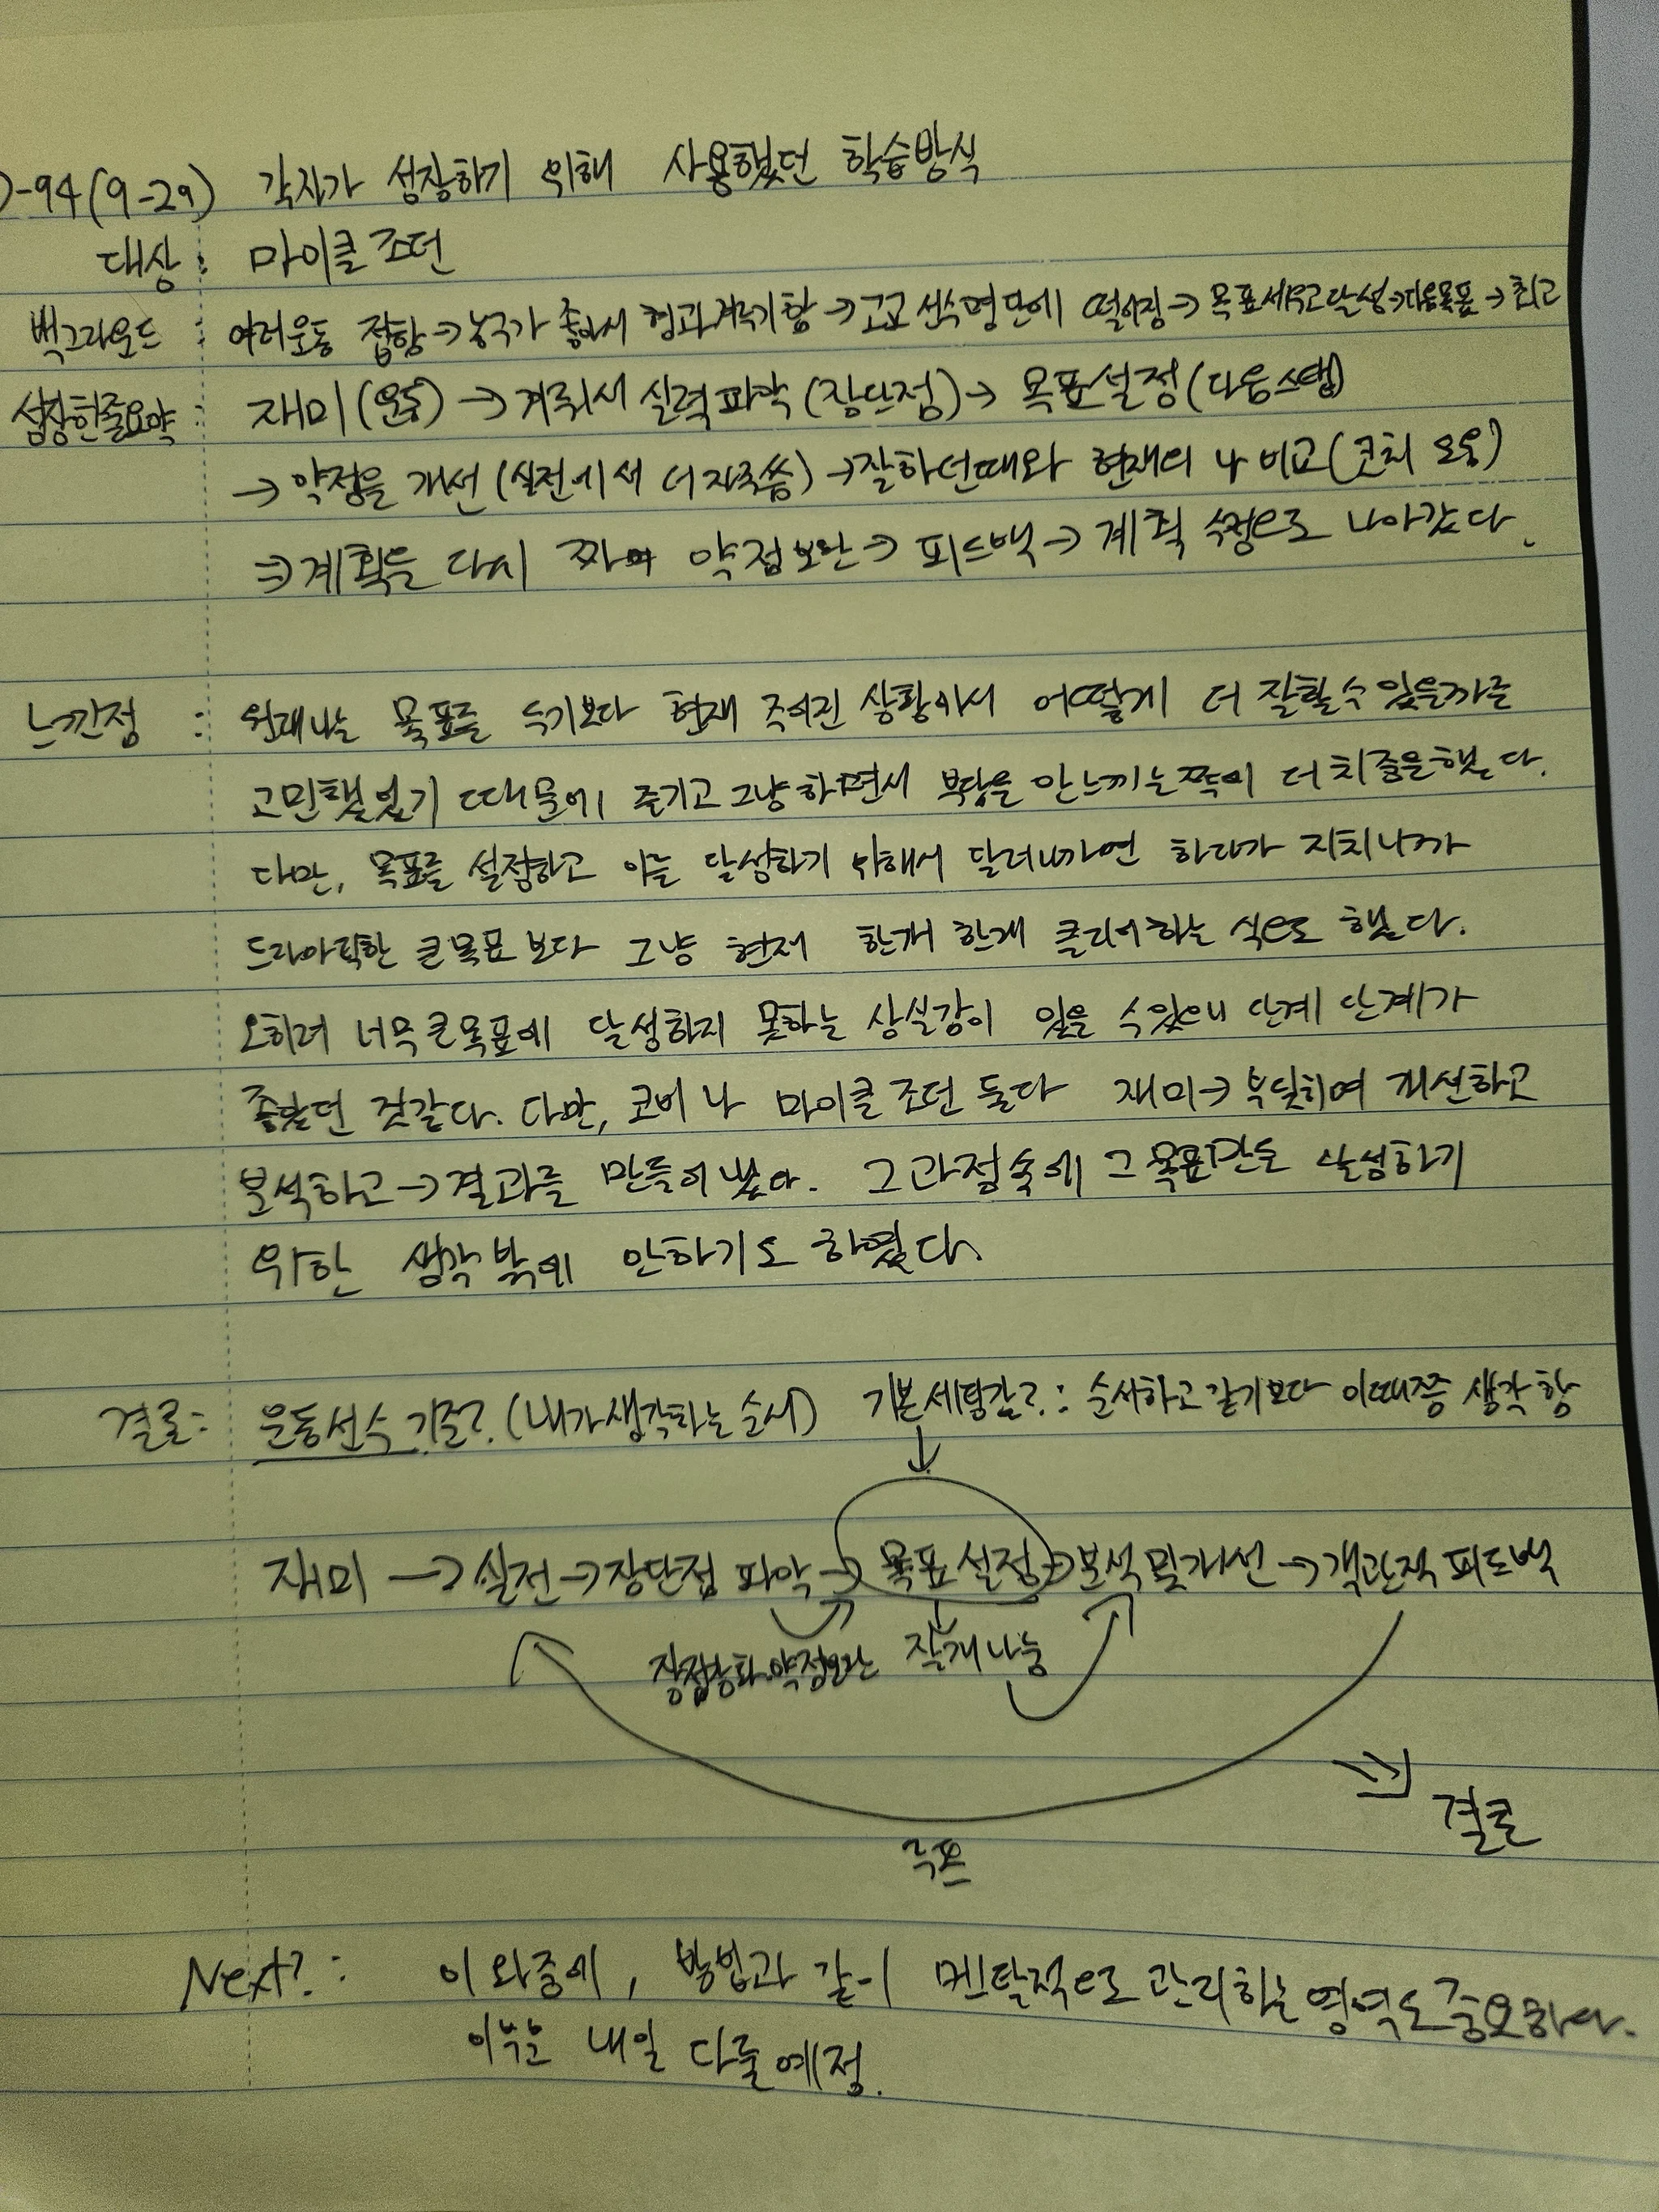 -94(9-29) 각자가 성장하기 위해 사용했던 학습방식
대상 : 마이클 조던
백그라운드 : 여러운동 접함→농구가 좋아서 형과 계속함→고교 선수명단에 떨어짐→목표세우고달성→다음목표→최고
성장한줄요약 : 재미(운동)→계속해서 실력파악(장단점)→목표설정(다음스텝)
→약점을 개선(실전에서 더 자주씀)→잘하던때와 현재의 나 비교(코치 도움)
⇒계획을 다시 짜며 약점보완→피드백→계획 수정으로 나아갔다.
느낀점 : 원래나는 목표를 두기보다 현재 주어진 상황에서 어떻게 더 잘할수있을까를
고민했었기 때문에 즐기고 그냥하면서 부담을 안느끼는쪽에 더 치중을했다.
다만, 목표를 설정하고 이를 달성하기 위해서 달려나가면 하다가 지치니까
드라마틱한 큰목표 보다 그냥 현재 한개 한개 클리어하는 식으로 했다.
오히려 너무큰목표에 달성하지 못하는 상실감이 있을 수있으니 단계 단계가
좋았던 것같다. 다만, 코비나 마이클조던 둘다 재미→부딪히며 개선하고
분석하고→결과를 만들어냈다. 그과정속에 그목표만을 달성하기
위한 생각밖에 안하기도 하였다.
결론: 운동선수 기준?(내가생각하는순서) 기본세팅값?: 순서하고 같기보다 이때쯤 생각함
재미→실전→장단점 파악→목표설정→분석 및 개선→객관적 피드백
장점강화 약점보완 잘게나눔
⇒ 결론
루프
Next?: 이와중에, 방법과 같이 멘탈적으로 관리하는 영역도 중요하다.
이부분 내일 다룰예정.